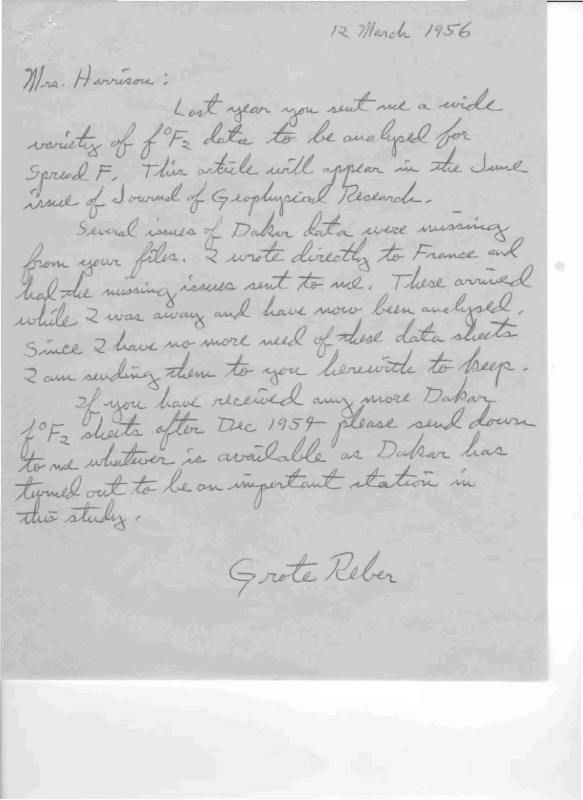 12 March 1956
Mrs. Harrison:
Last year you sent me a wide
variety of f°F₂ data to be analysed for
Spread F. This article will appear in the June
issue of Journal of Geophysical Research.
Several issues of Dakar data were missing
from your files. I wrote directly to France and
had the missing issues sent to me. These arrived
while I was away and have now been analysed.
Since I have no more need of these data sheets
I am sending them to you herewith to keep.
If you have received any more Dakar
f°F₂ sheets after Dec 1954 please send down
to me whatever is available as Dakar has
turned out to be an important station in
this study.
Grote Reber